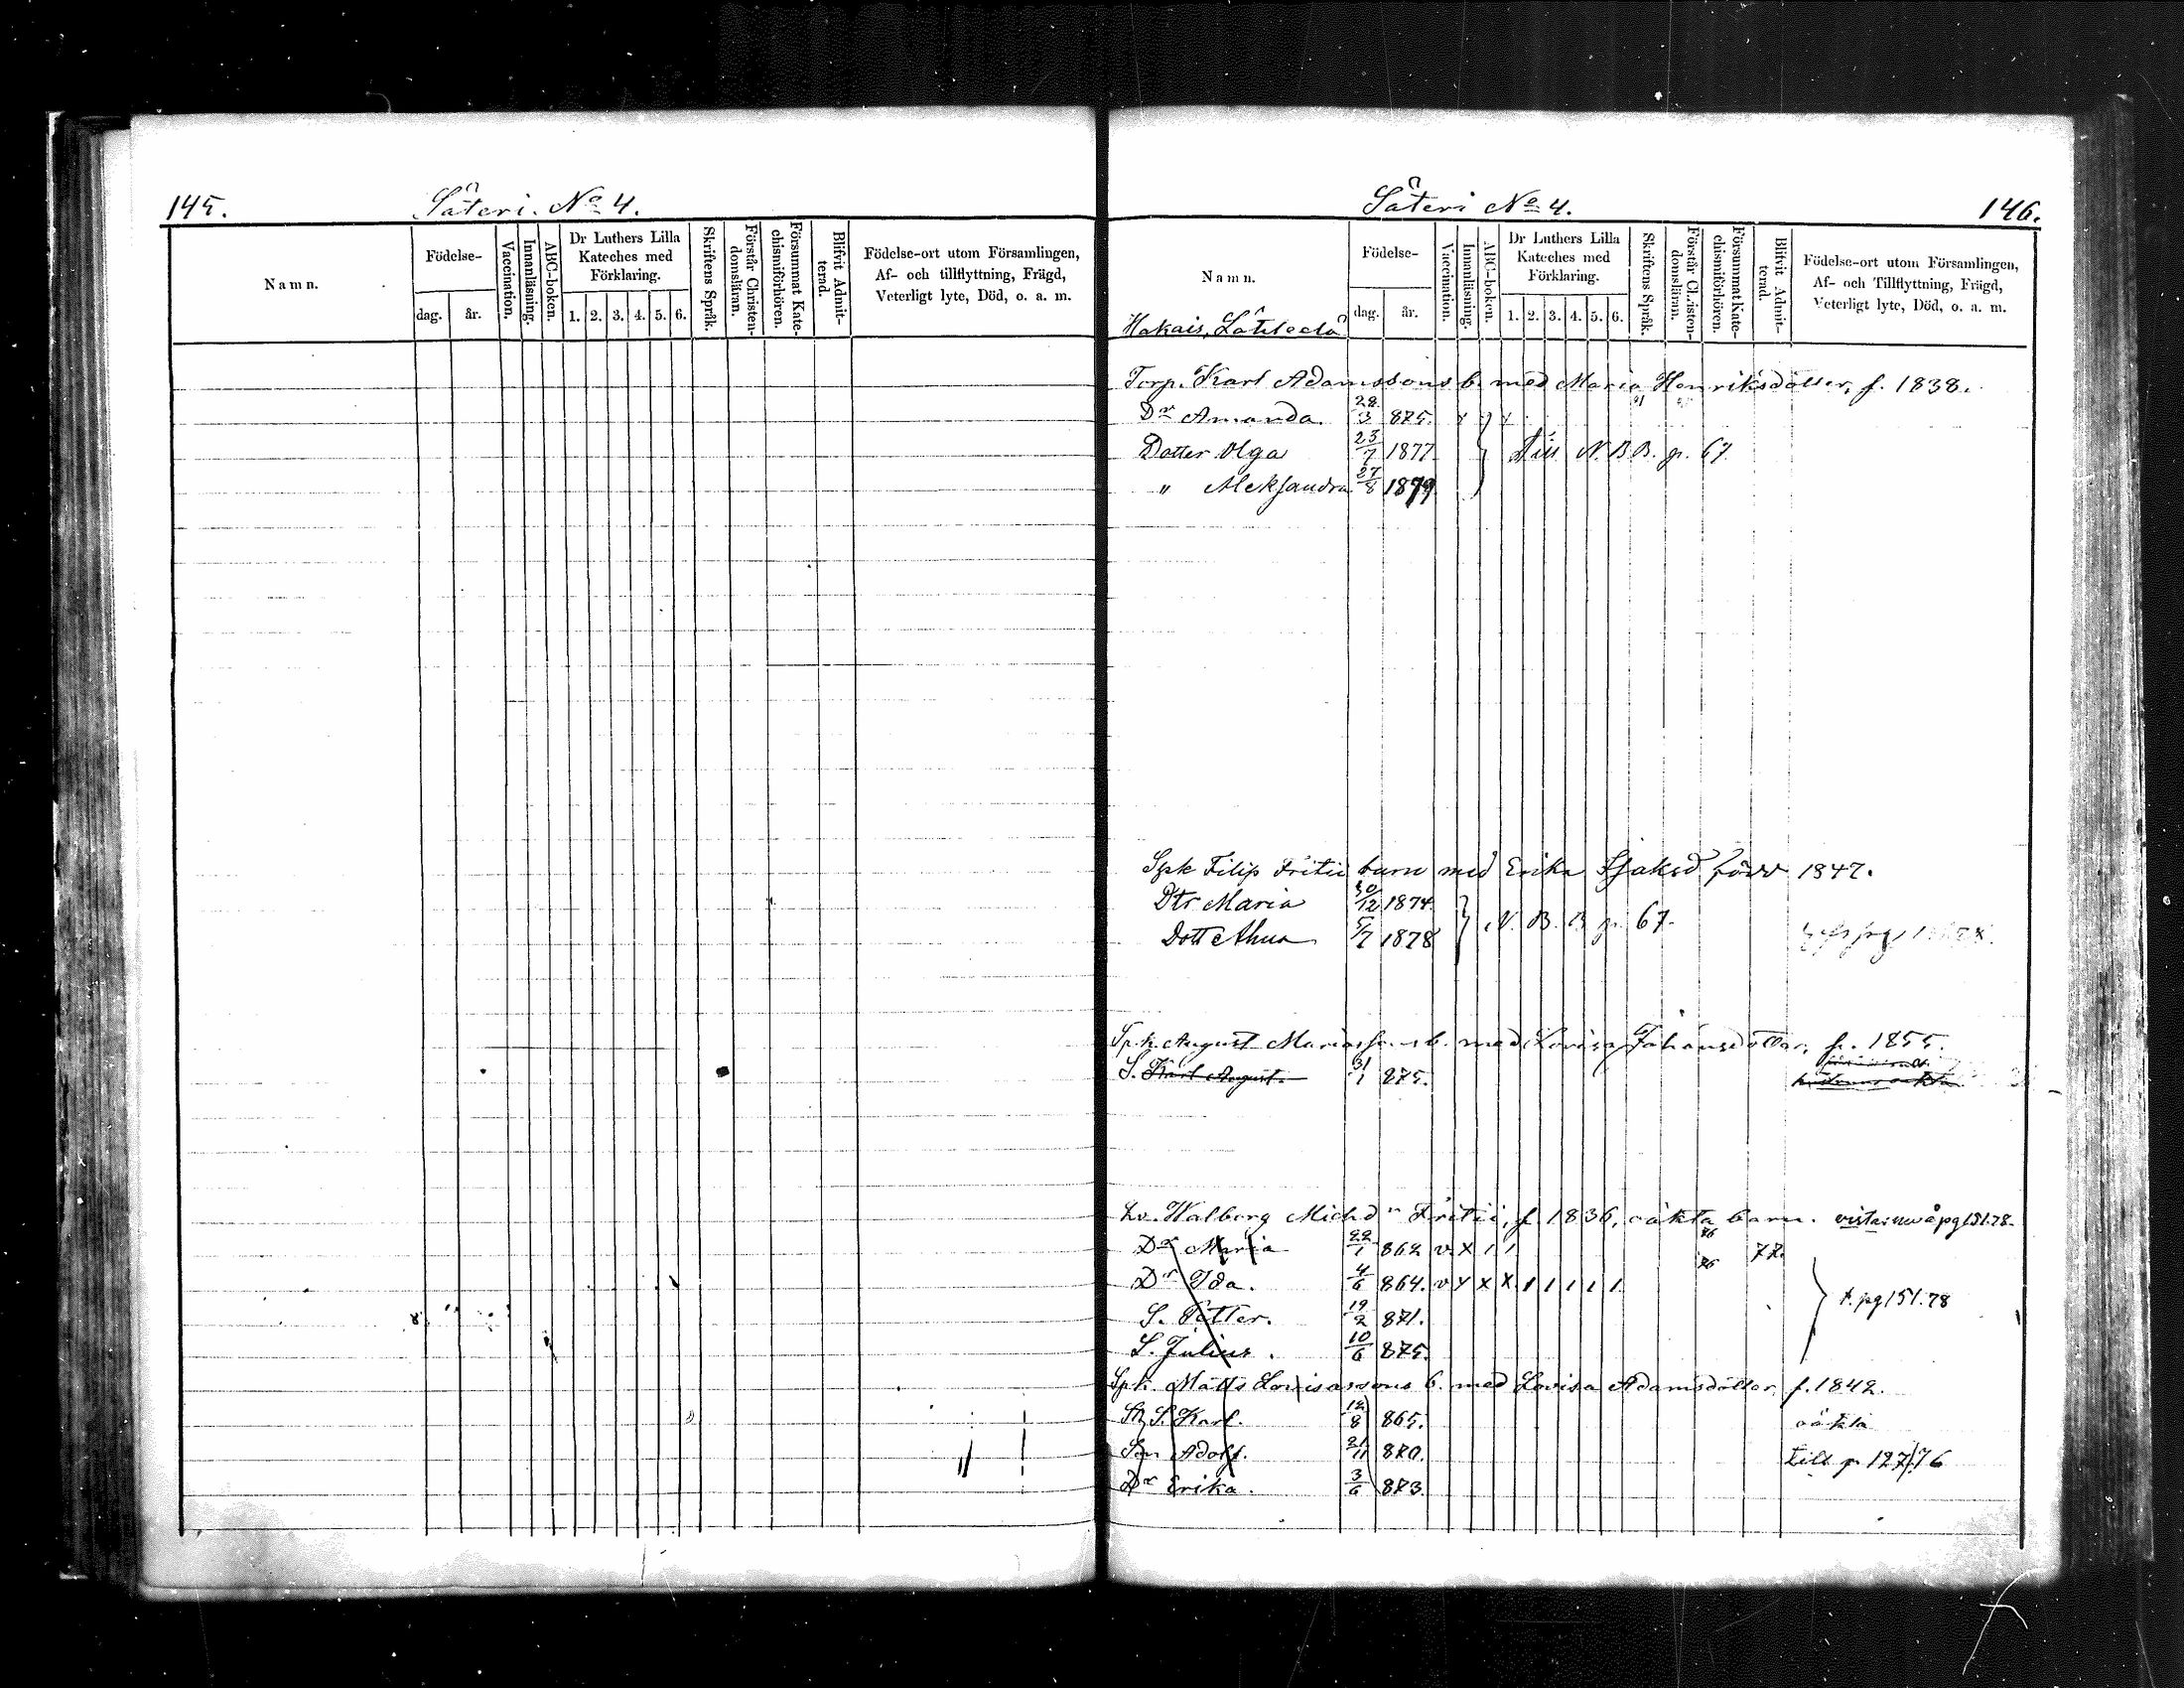 145. Såteri. No 4.
Namn.
Födelse-
dag. år.
Vaccination.
Innanläsning.
ABC-boken.
Dr Luthers Lilla Kateches med Förklaring.
1. 2. 3. 4. 5. 6.
Skriftens Språk.
Förstår Christendomsläran.
Försummat Katechismiförhören.
Blifvit Admitterad.
Födelse-ort utom Församlingen,
Af- och tillflyttning, Frägd,
Veterligt lyte, Död, o. a. m.
Såteri No 4. 146.
Namn.
Födelse-
dag. år.
Vaccination.
Innanläsning.
ABC-boken.
Dr Luthers Lilla Kateches med Förklaring.
1. 2. 3. 4. 5. 6.
Skriftens Språk.
Förstår Christendomsläran.
Försummat Katechismiförhören.
Blifvit Admitterad.
Födelse-ort utom Församlingen,
Af- och Tillflyttning, Frägd,
Veterligt lyte, Död, o. a. m.
Hakais,
Torp. Karl Adamssons b. med Maria Henriksdotter, f. 1838.
Dr Amanda. 28/3 875.
Dotter Olga 23/7 1877 N. B. B. p. 67
" Aleksandra 27/8 1879
Spk Filip Fritii barn med Erika född 1847.
Dtr Maria 30/12 1874 N. B. B p. 67.
Dott 5/7 1878
Spk. August b. med Lovisa Johansdotter, f. 1855.
S. Karl August. 31/1 875.
Walborg Michdr Fritii, f 1836, oäkta barn. pg 151.78.
Dr Maria 22/1 862 v x 1 1 77.
Dr Ida. 4/6 864. v x x x 1 1 1 1 1
S. Petter. 19/2 871. t. pg 151.78
S. Julius. 10/6 875.
Spk. Matts Lovisassons b. med Lovisa Adamsdotter, f. 1842.
S. Karl. 12/8 865. oäkta
Son Adolf. 21/11 870. till p 127/76
Dr Erika. 3/6 873.